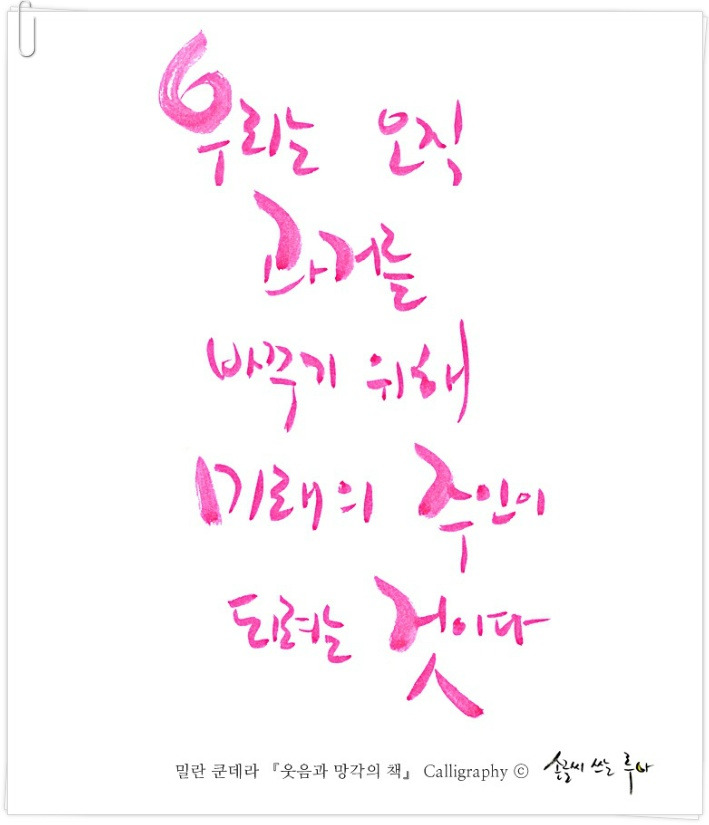 우리는 오직
과거를
바꾸기 위해
미래의 주인이
되려는 것이다
밀란 쿤데라 『웃음과 망각의 책』 Calligraphy ⓒ 손글씨 쓰는 루아